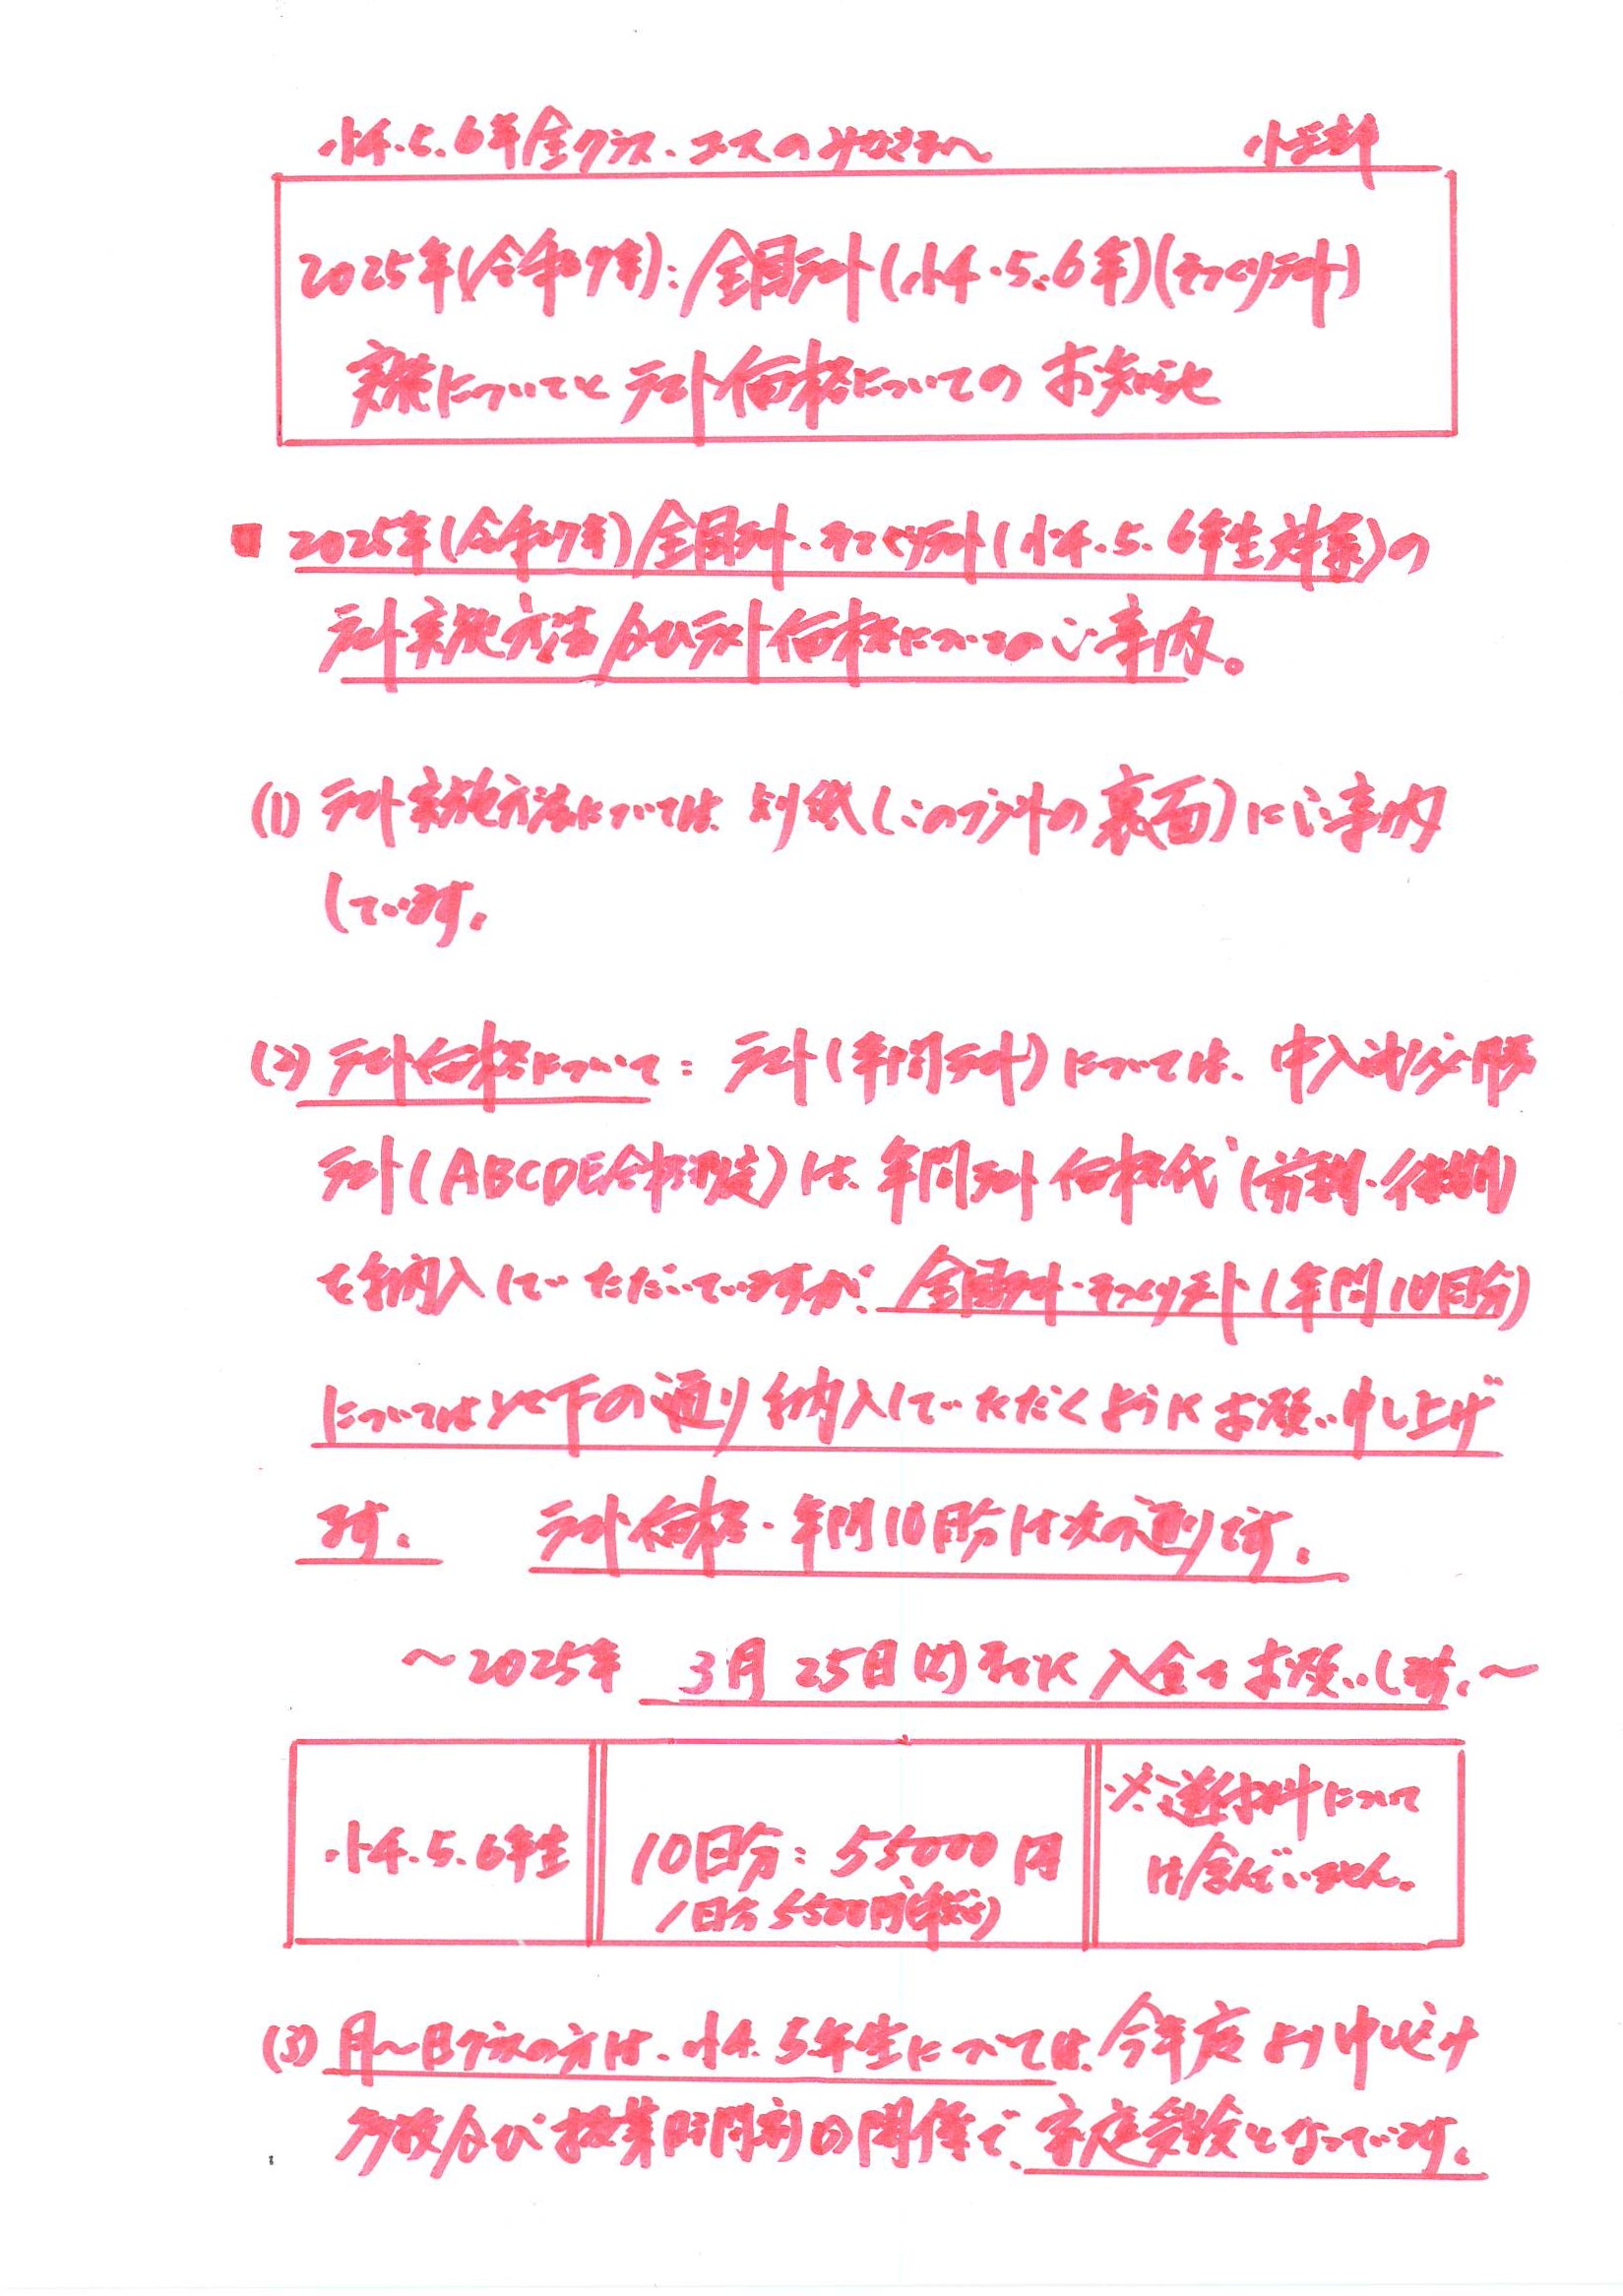 小4.5.6年全クラス.コースのみなさまへ 小学部
2025年(令和7年):全国テスト(小4.5.6年)(そっくりテスト)
実施についてとテスト価格についてのお知らせ
■ 2025年(令和7年)全国テスト.そっくりテスト(小4.5.6年生対象)の
テスト実施方法及びテスト価格についてのご案内。
(1) テスト実施方法については別紙(このプリントの裏面)にご案内
しています。
(2) テスト価格について: テスト(年間テスト)については、中入試必勝
テスト(ABCDE合格判定)は、年間テスト価格代(前期.後期)
を納入していただいていますが、全国テスト.そっくりテスト(年間10回分)
については以下の通り納入していただくようにお願い申し上げ
ます。 テスト価格.年間10回分は次の通りです。
〜2025年 3月25日(火)までに入金をお願いします。〜
小4.5.6年生
10回分: 55000円
1回分5500円(税込)
※送付料について
は含んでいません。
(3) 月〜日クラスの方は、小4.5年生については、今年度より申し込み
多数及び授業時間割の関係で、家庭受験となっています。